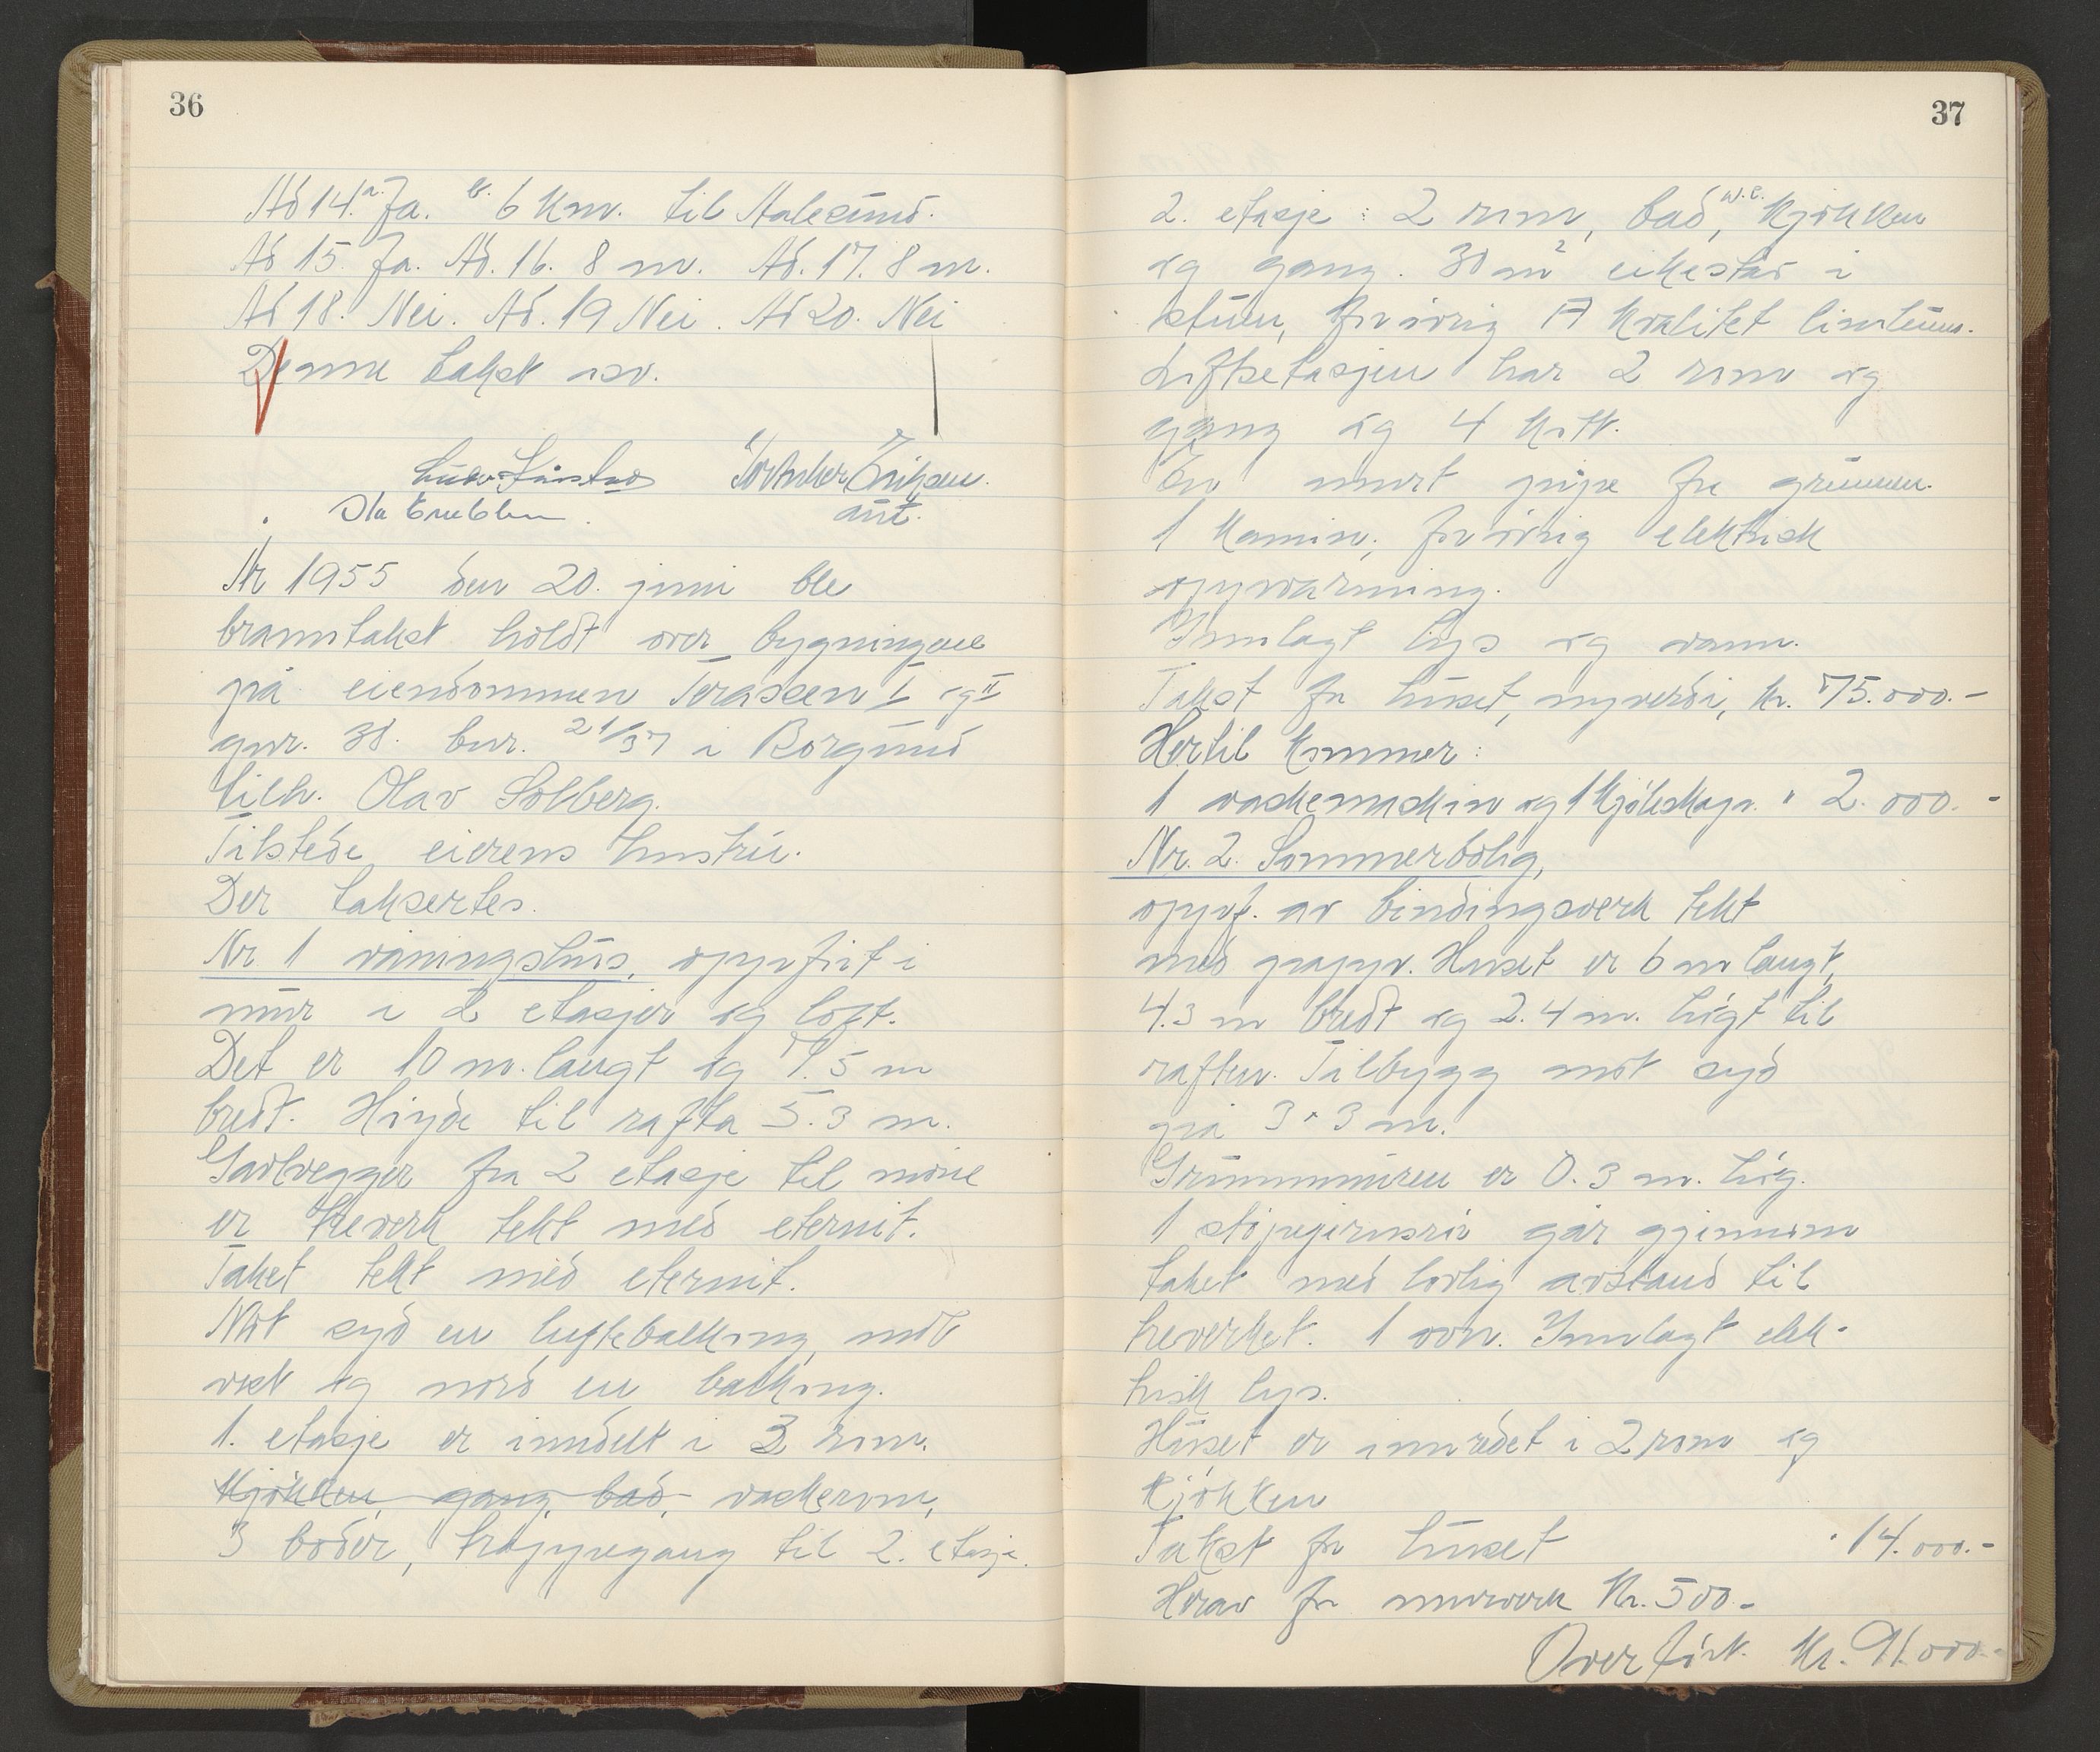 36
Ad 14. a. Ja. b. 6 km. til Aalesund.
Ad 15. Ja. Ad. 16. 8 m. Ad. 17. 8 m.
Ad 18. Nei. Ad. 19 Nei. Ad 20. Nei
Denne takst osv.
Eriksen.
Ola
År 1955 den 20. juni ble
branntakst holdt over bygningene
på eiendommen Terassen I og II
gnr. 38. bnr. 21/37 i Borgund
tilh. Olav Solberg.
Tilstede eierens hustru.
Der taksertes.
Nr 1 våningshus, oppført i
mur i 2 etasjer og loft.
Det er 10 m. langt og 7.5 m
bredt. Høyde til rafta 5.3 m.
Gavlvegger fra 2 etasje til møne
er treverk tekt med eternit.
Taket tekt med eternit.
Mot syd en luftebalkong, mot
vest og nord en balkong.
1. etasje er inndelt i 3 rom.
kjøkken, gang, bad, vaskerom,
3 boder, trappegang til 2. etasje.
37
2. etasje: 2 rom, bad, w.c. kjøkken
og gang. 30 m2 eikestav i
stuen, forøvrig A kvalitet linoleum.
Loftsetasjen har 2 rom og
gang og 4 kott.
En murt pipe fra grunnen.
1 kamin, forøvrig elektrisk
oppvarming.
Innlagt lys og vann.
Takst for huset, nyverdi, kr. 75.000.-
Hertil kommer:
1 vaskemaskin og 1 kjøleskap. " 2.000.-
Nr. 2. Sommerbolig,
oppf. av bindingsverk tekt
med papp. Huset er 6 m langt,
4.3 m bredt og 2.4 m. høgt til
raften. Tilbygg mot syd
på 3 x 3 m.
Grunnmuren er 0.3 m. høg.
1 støpejernsrør går gjennom
taket med lovlig avstand til
treverket. 1 ovn. Innlagt elek-
trisk lys.
Huset er innredet i 2 rom og
kjøkken
Takst for huset " 14.000.-
Herav for murverk Kr. 500.-
Overført. Kr. 91.000.-